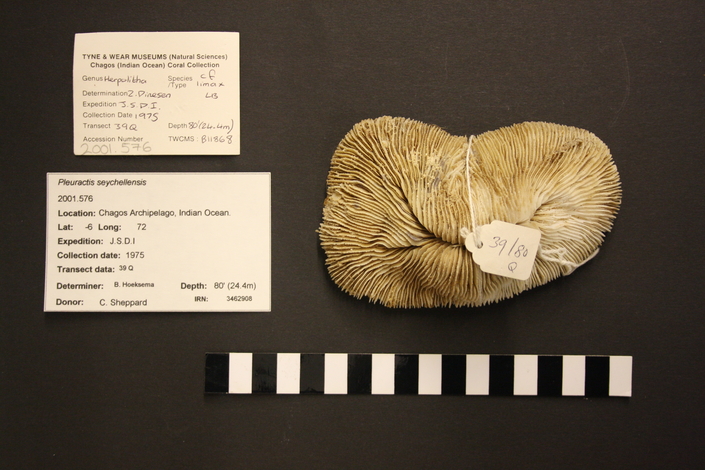 TYNE & WEAR MUSEUMS (Natural Sciences)
Chagos (Indian Ocean) Coral Collection
Genus Herpolitha Species /Type cf limax
Determination Z. Dinesen LB
Expedition J.S.D.I.
Collection Date 1975
Transect 39Q Depth 80'(24.4m)
Accession Number TWCMS: B11868
2001.576
Pleuractis seychellensis
2001.576
Location: Chagos Archipelago, Indian Ocean.
Lat: -6 Long: 72
Expedition: J.S.D.I
Collection date: 1975
Transect data: 39 Q
Determiner: B. Hoeksema Depth: 80' (24.4m)
Donor: C. Sheppard IRN: 3462908
39/80
Q